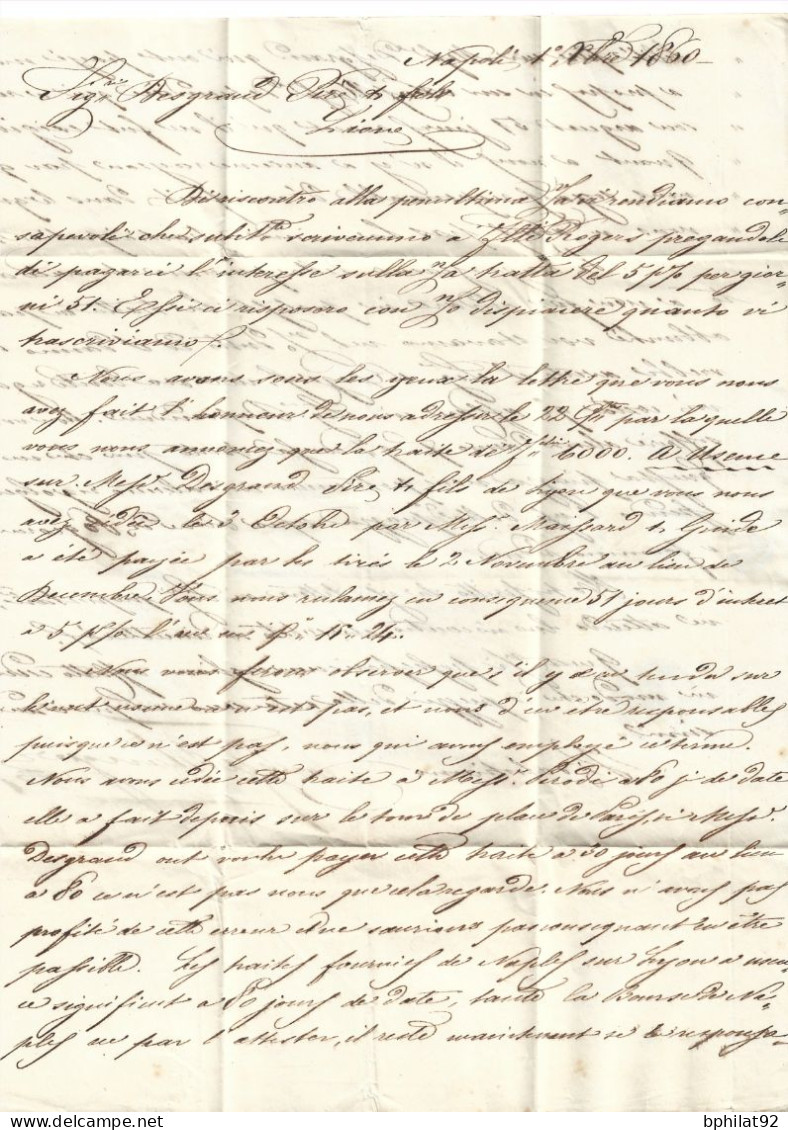 Napoli 1° Xbre 1860
Sigri Desgrand Père & fils
Lione
Di riscontro alla penultima Vra vi rendiamo con-
sapevoli che subito scrivemmo a Rogers pregandole
di pagarci l'interesse sulla Vra tratta del 5 p% per gior-
ni 51. Essi ci risposero con Nro dispiacere quanto vi
trascriviamo.
Nous avons sous les yeux la lettre que vous nous
avez fait l'honneur de nous adresser le 22 par laquelle
vous nous annoncez que la traite de 6000. A Usance
sur Messrs Desgrand Père & fils de Lyon que vous nous
avez cédée le 3 Octobre par Messrs &
a été payée par les tirés le 2 Novembre au lieu de
Decembre. Vous nous reclamez en consequence 51 jours d'interet
à 5 p% l'an 15.24.
Nous vous ferons observer que s'il y a sur
pas, et nous d'en être responsables
puisque ce n'est pas, nous qui avons employé ce terme.
Nous avons cédée cette traite à Messrs a 80 j. de date
elle a fait depuis sur le de place de Paris, si Messrs
Desgrand ont voulu payer cette traite a 30 jours au lieu
a 80 ce n'est pas nous que cela regarde. Nous n'avons pas
profité de cette erreur & ne saurions pas en être
passible. Les traites fournies de Naples sur Lyon a usan-
ce significent a 80 jours de date, toute la Bourse de Na-
ples ne par l'attester, il reste maintenant si le responsa-
bphilat92